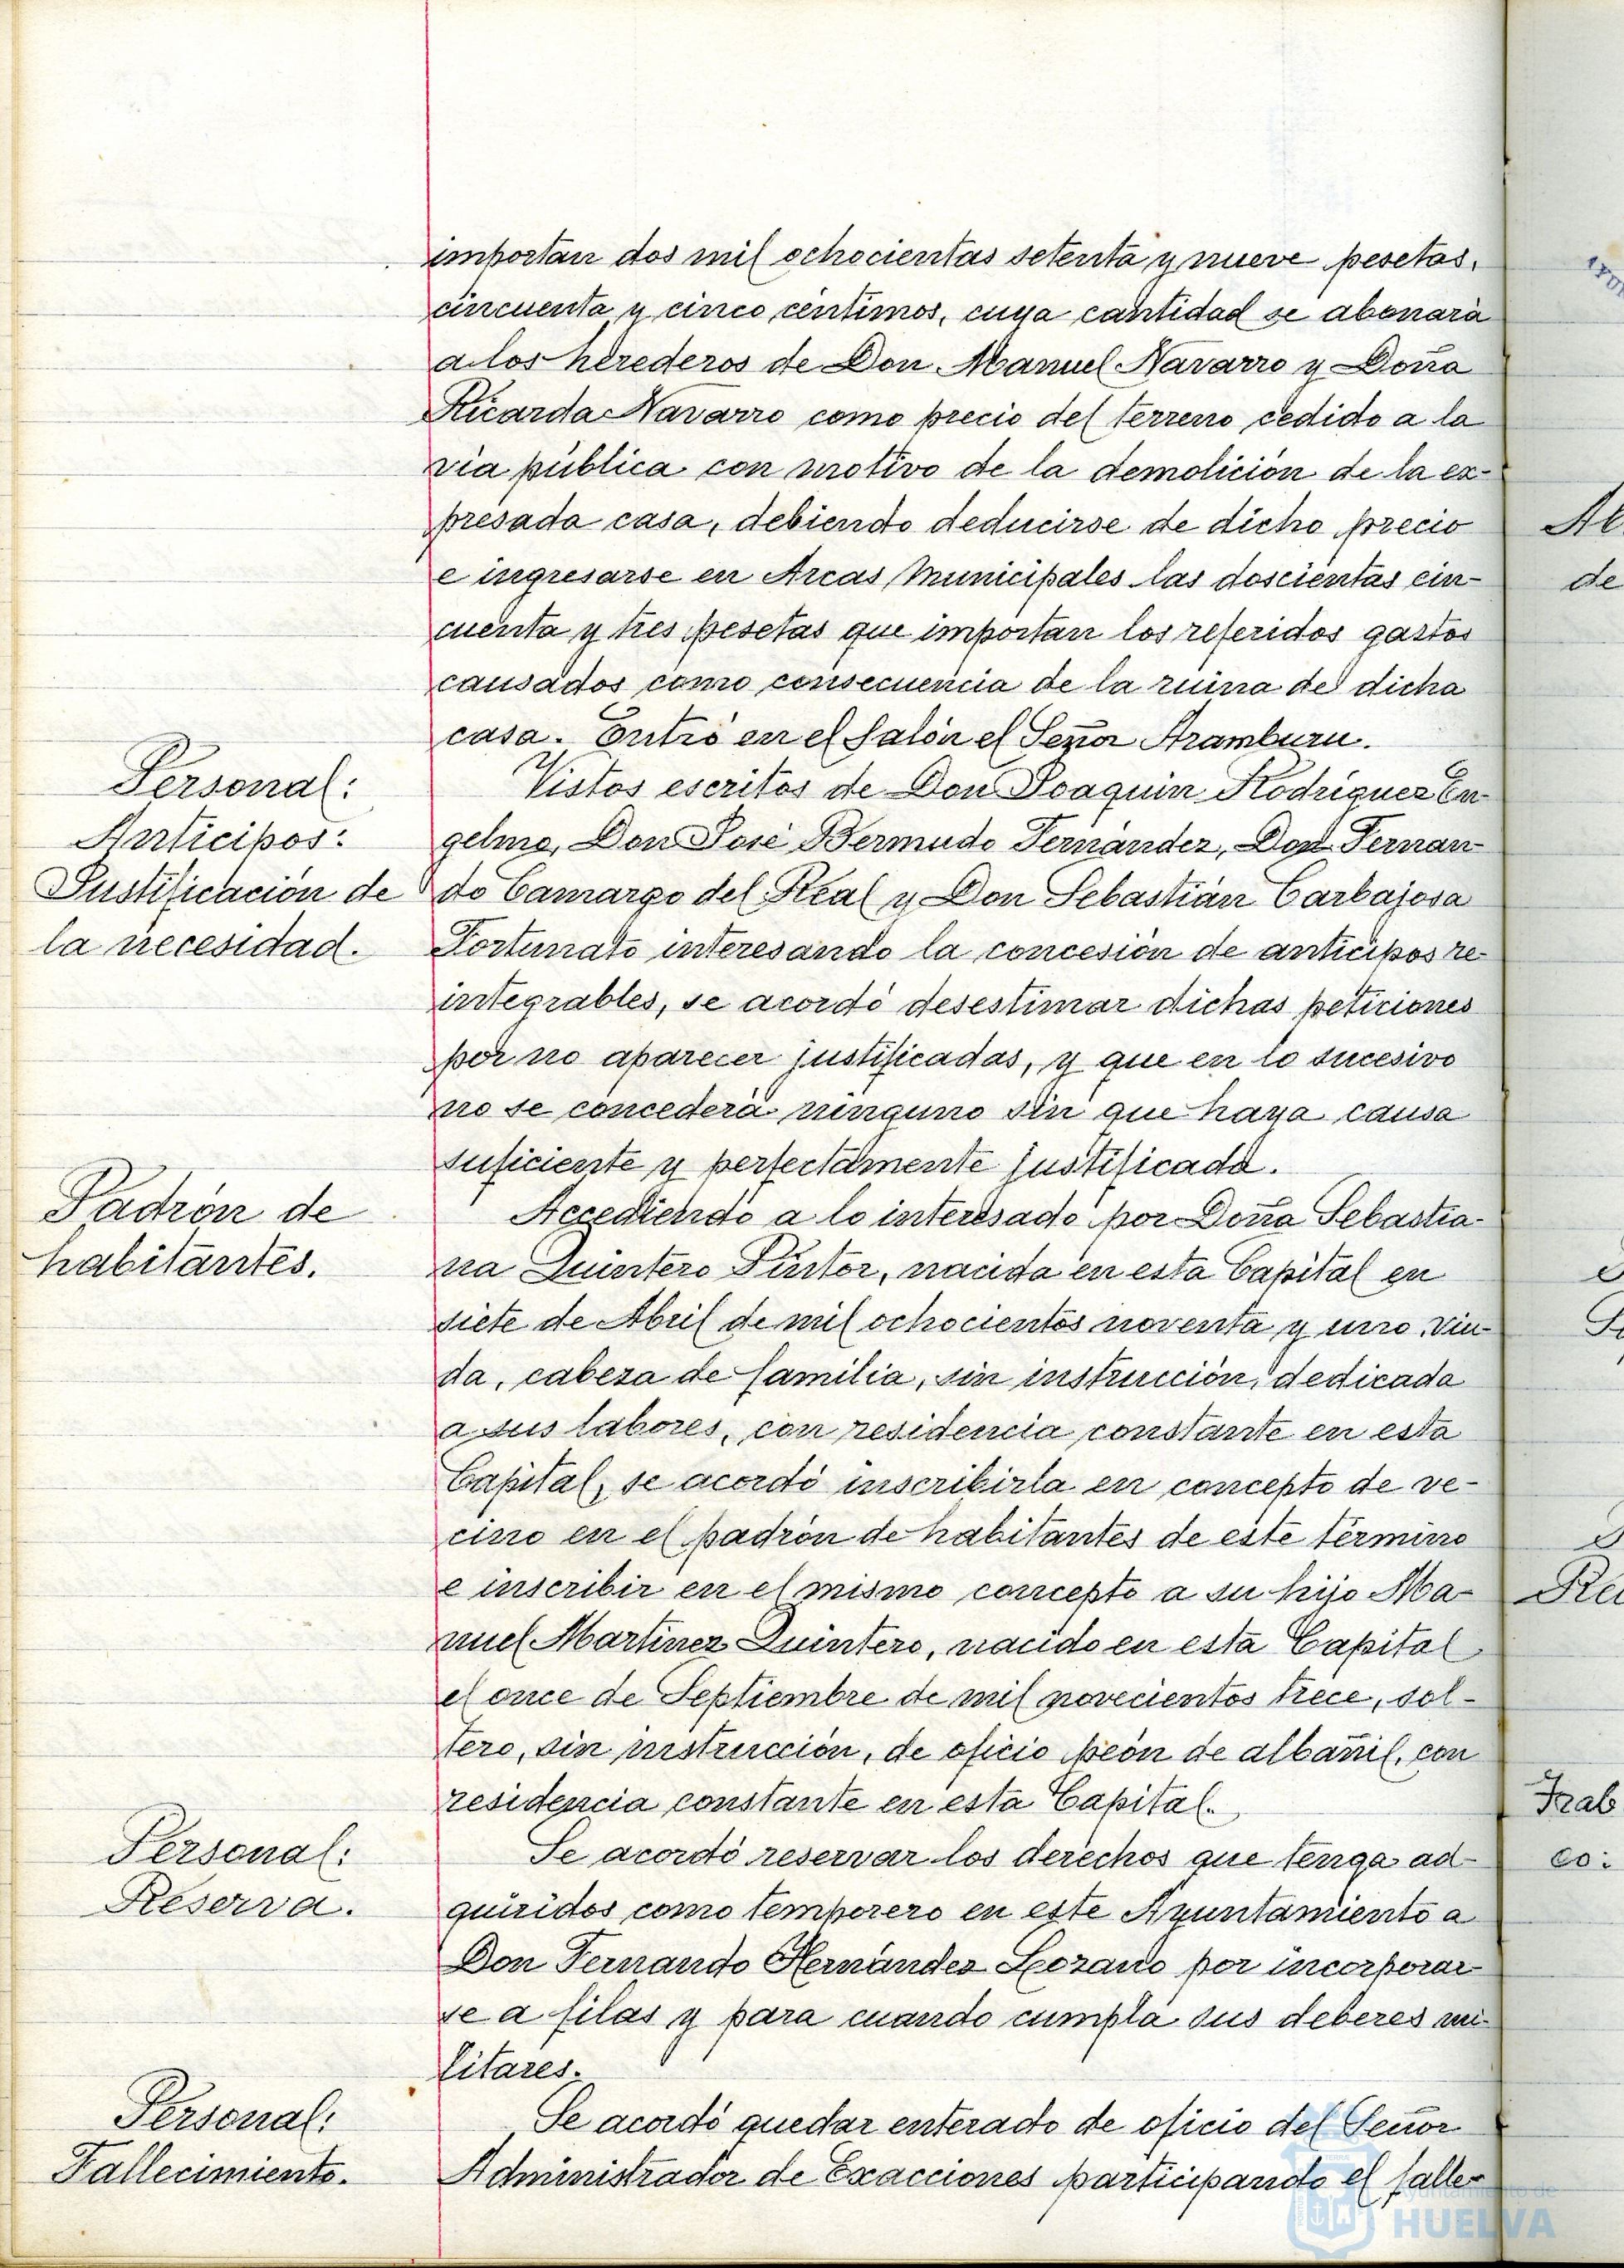 importan dos mil ochocientas setenta y nueve pesetas,
cincuenta y cinco céntimos, cuya cantidad se abonará
a los herederos de Don Manuel Navarro y Doña
Ricarda Navarro como precio del terreno cedido a la
vía pública con motivo de la demolición de la ex-
presada casa, debiendo deducirse de dicho precio
e ingresarse en Arcas Municipales las doscientas cin-
cuenta y tres pesetas que importan los referidos gastos
causados como consecuencia de la ruina de dicha
casa. Entró en el Salón el Señor Aramburu.
Personal:
Anticipos:
Justificación de
la necesidad.
Vistos escritos de Don Joaquin Rodríguez En-
gelmo, Don José Bermudo Fernández, Don Fernan-
do Camargo del Real y Don Sebastián Carbajosa
Fortunato interesando la concesión de anticipos re-
integrables, se acordó desestimar dichas peticiones
por no aparecer justificadas, y que en lo sucesivo
no se concederá ninguno sin que haya causa
suficiente y perfectamente justificada.
Padrón de
habitantes.
Accediendo a lo interesado por Doña Sebastia-
na Quintero Pintor, nacida en esta Capital en
siete de Abril de mil ochocientos noventa y uno, viu-
da, cabeza de familia, sin instrucción, dedicada
a sus labores, con residencia constante en esta
Capital, se acordó inscribirla en concepto de ve-
cino en el padrón de habitantes de este término
e inscribir en el mismo concepto a su hijo Ma-
nuel Martínez Quintero, nacido en esta Capital
el once de Septiembre de mil novecientos trece, sol-
tero, sin instrucción, de oficio peón de albañil, con
residencia constante en esta Capital.
Personal:
Reserva.
Se acordó reservar los derechos que tenga ad-
quiridos como temporero en este Ayuntamiento a
Don Fernando Hernández Lozano por incorporar-
se a filas y para cuando cumpla sus deberes mi-
litares.
Personal:
Fallecimiento.
Se acordó quedar enterado de oficio del Señor
Administrador de Exacciones participando el falle-
de
Trab
co:
Ayuntamiento de
HUELVA